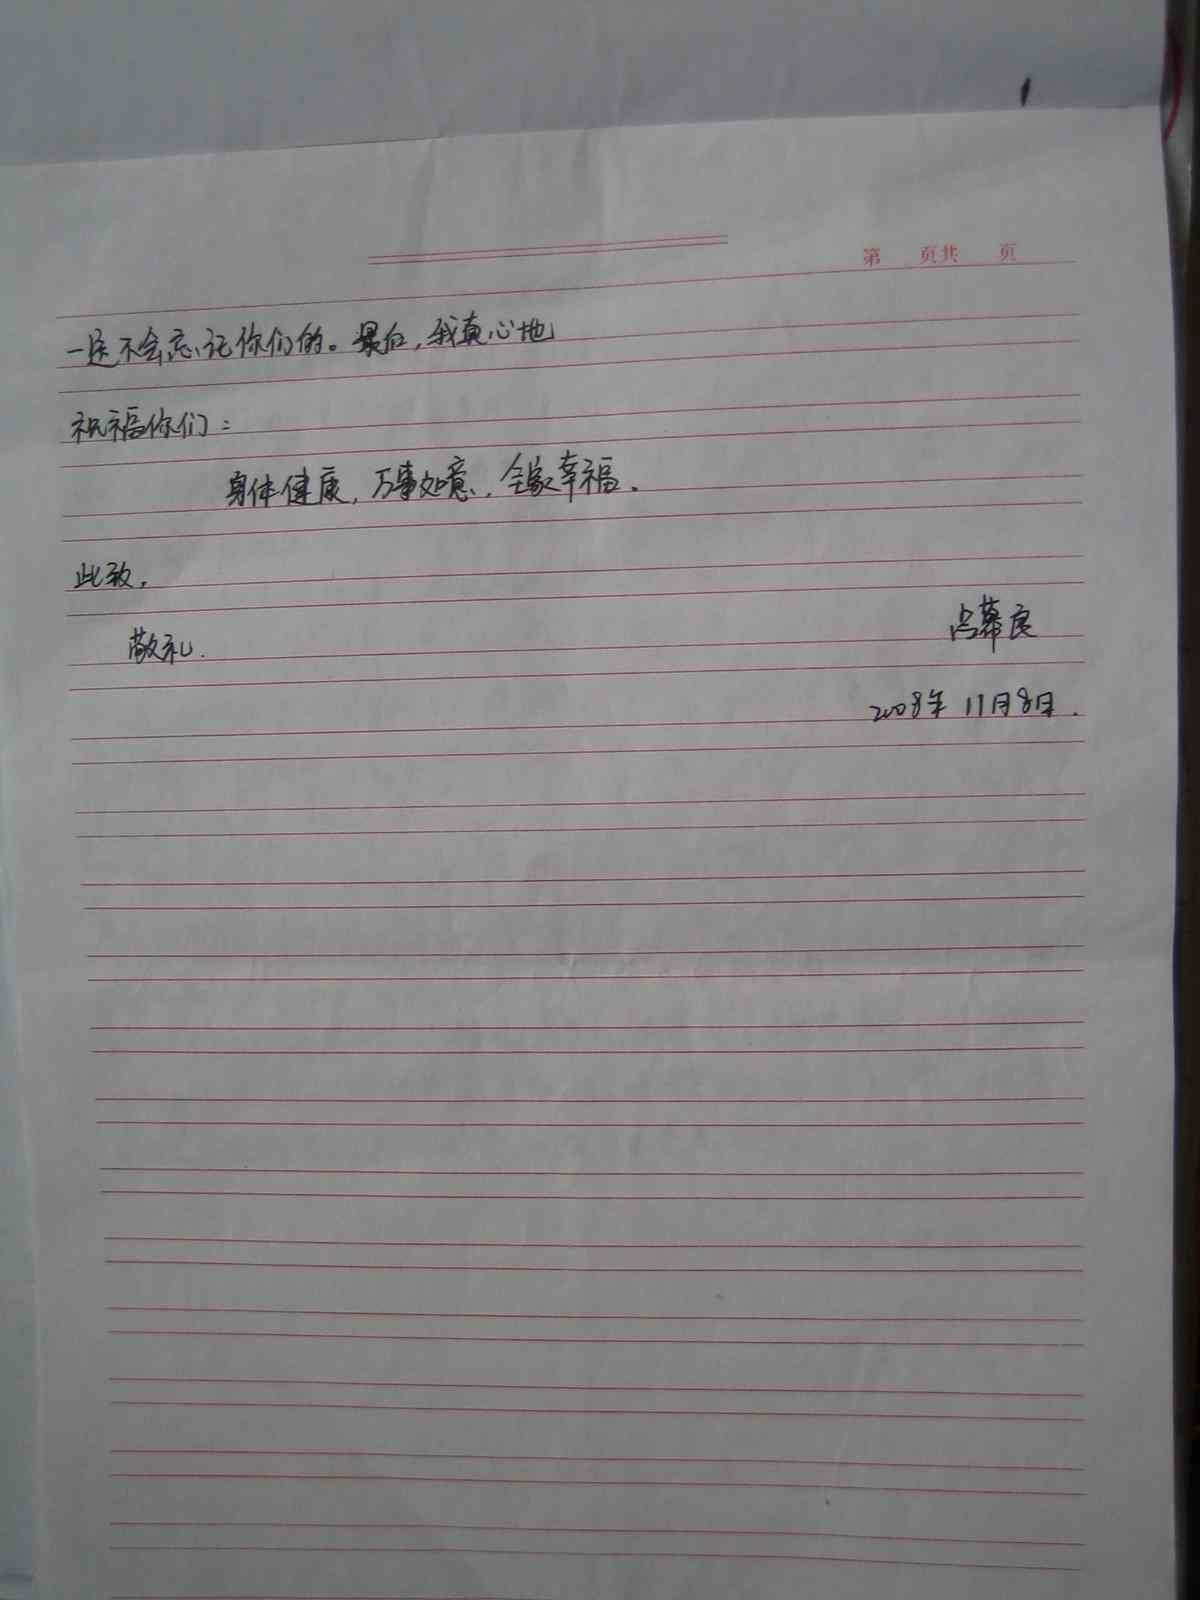 第 页共 页
一定不会忘记你们的。最后，我真心地
祝福你们：
身体健康，万事如意，全家幸福。
此致，
敬礼.
幕良
2008年 11月8日.